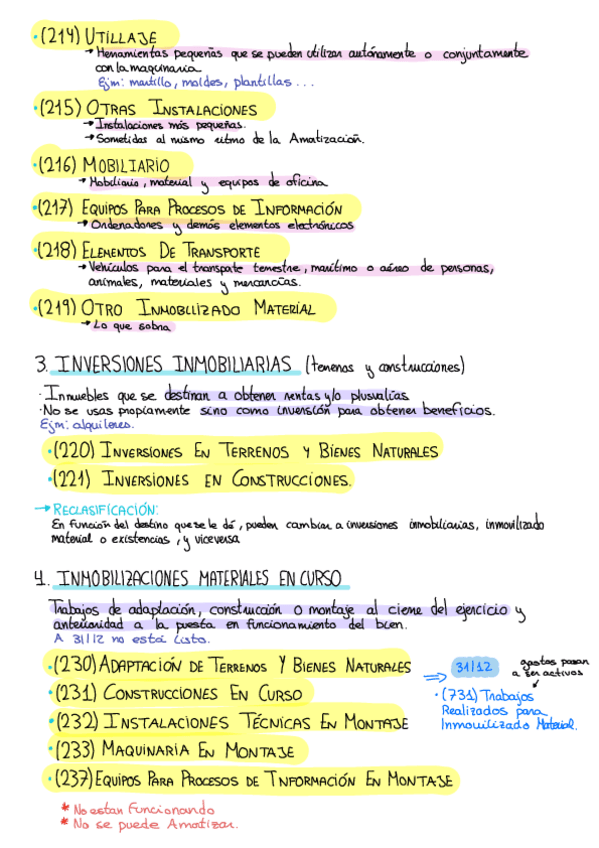 ·(214) UTILLAJE
→ Herramientas pequeñas que se pueden utilizar autónamente o conjuntamente
con la maquinaria
Ejm: martillo, moldes, plantillas ...
·(215) OTRAS INSTALACIONES
→ Instalaciones más pequeñas.
→ Sometidas al mismo ritmo de la Amatización.
·(216) MOBILIARIO
→ Mobiliario, material y equipos de oficina
·(217) EQUIPOS PARA PROCESOS DE INFORMACIÓN
→ Ordenadores y demás elementos electrónicos
·(218) ELEMENTOS DE TRANSPORTE
→ Vehículos para el transpate terrestre, marítimo o aéreo de personas,
animales, materiales y mercancías.
·(219) OTRO INMOBILIZADO MATERIAL
→ Lo que sobra
3. INVERSIONES INMOBILIARIAS (terrenos y construcciones)
· Inmuebles que se destinan a obtener rentas y/o plusvalías
· No se usas propiamente sino como inversión para obtener beneficios.
Ejm: alquileres.
·(220) INVERSIONES EN TERRENOS Y BIENES NATURALES
·(221) INVERSIONES EN CONSTRUCCIONES.
→ RECLASIFICACIÓN:
En función del destino que se le dé, pueden cambiar a inversiones inmobiliarias, inmovilizado
material o existencias, y viceversa
4. INMOBILIZACIONES MATERIALES EN CURSO
Trabajos de adaptación, construcción o montaje al cierre del ejercicio y
anterioridad a la puesta en funcionamiento del bien.
A 31/12 no está listo.
·(230) ADAPTACIÓN DE TERRENOS Y BIENES NATURALES
·(231) CONSTRUCCIONES EN CURSO
·(232) INSTALACIONES TÉCNICAS EN MONTAJE
·(233) MAQUINARIA EN MONTAJE
·(237) EQUIPOS PARA PROCESOS DE INFORMACIÓN EN MONTAJE
⇒ 31/12 gastos pasan
a ser activos
·(731) Trabajos
Realizados para
Inmouilizado Material.
* No estan Funcionando
* No se puede Amatizar.